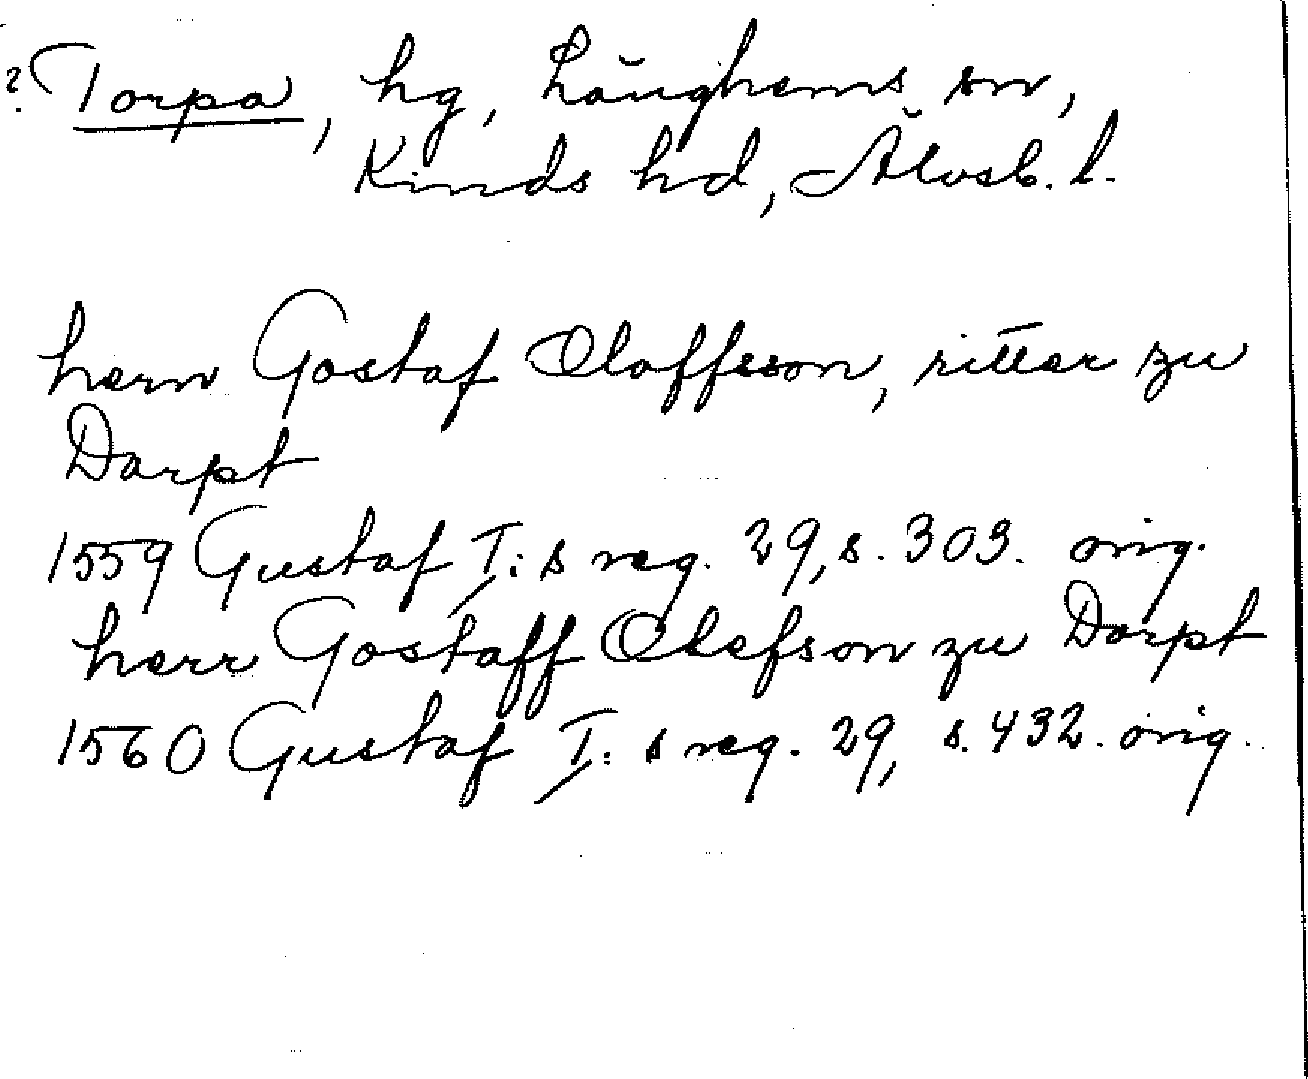 ? Torpa, hg, Länghems sn,
Kinds hd, Älvsb. l.
herrn Gostaf Oloffsson, ritter zu
Darpt
1559 Gustaf I:s reg. 29, s. 303. orig.
herr Gostaff Olefson zu Dorpt
1560 Gustaf I:s reg. 29, s. 432. orig.